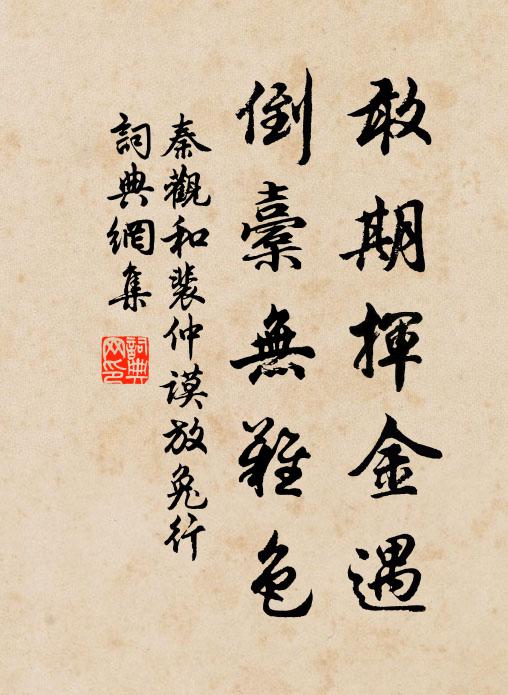 敢期揮金遇
倒橐無難色
秦觀和裴仲謨放兔行
詞典網集
詞典网印